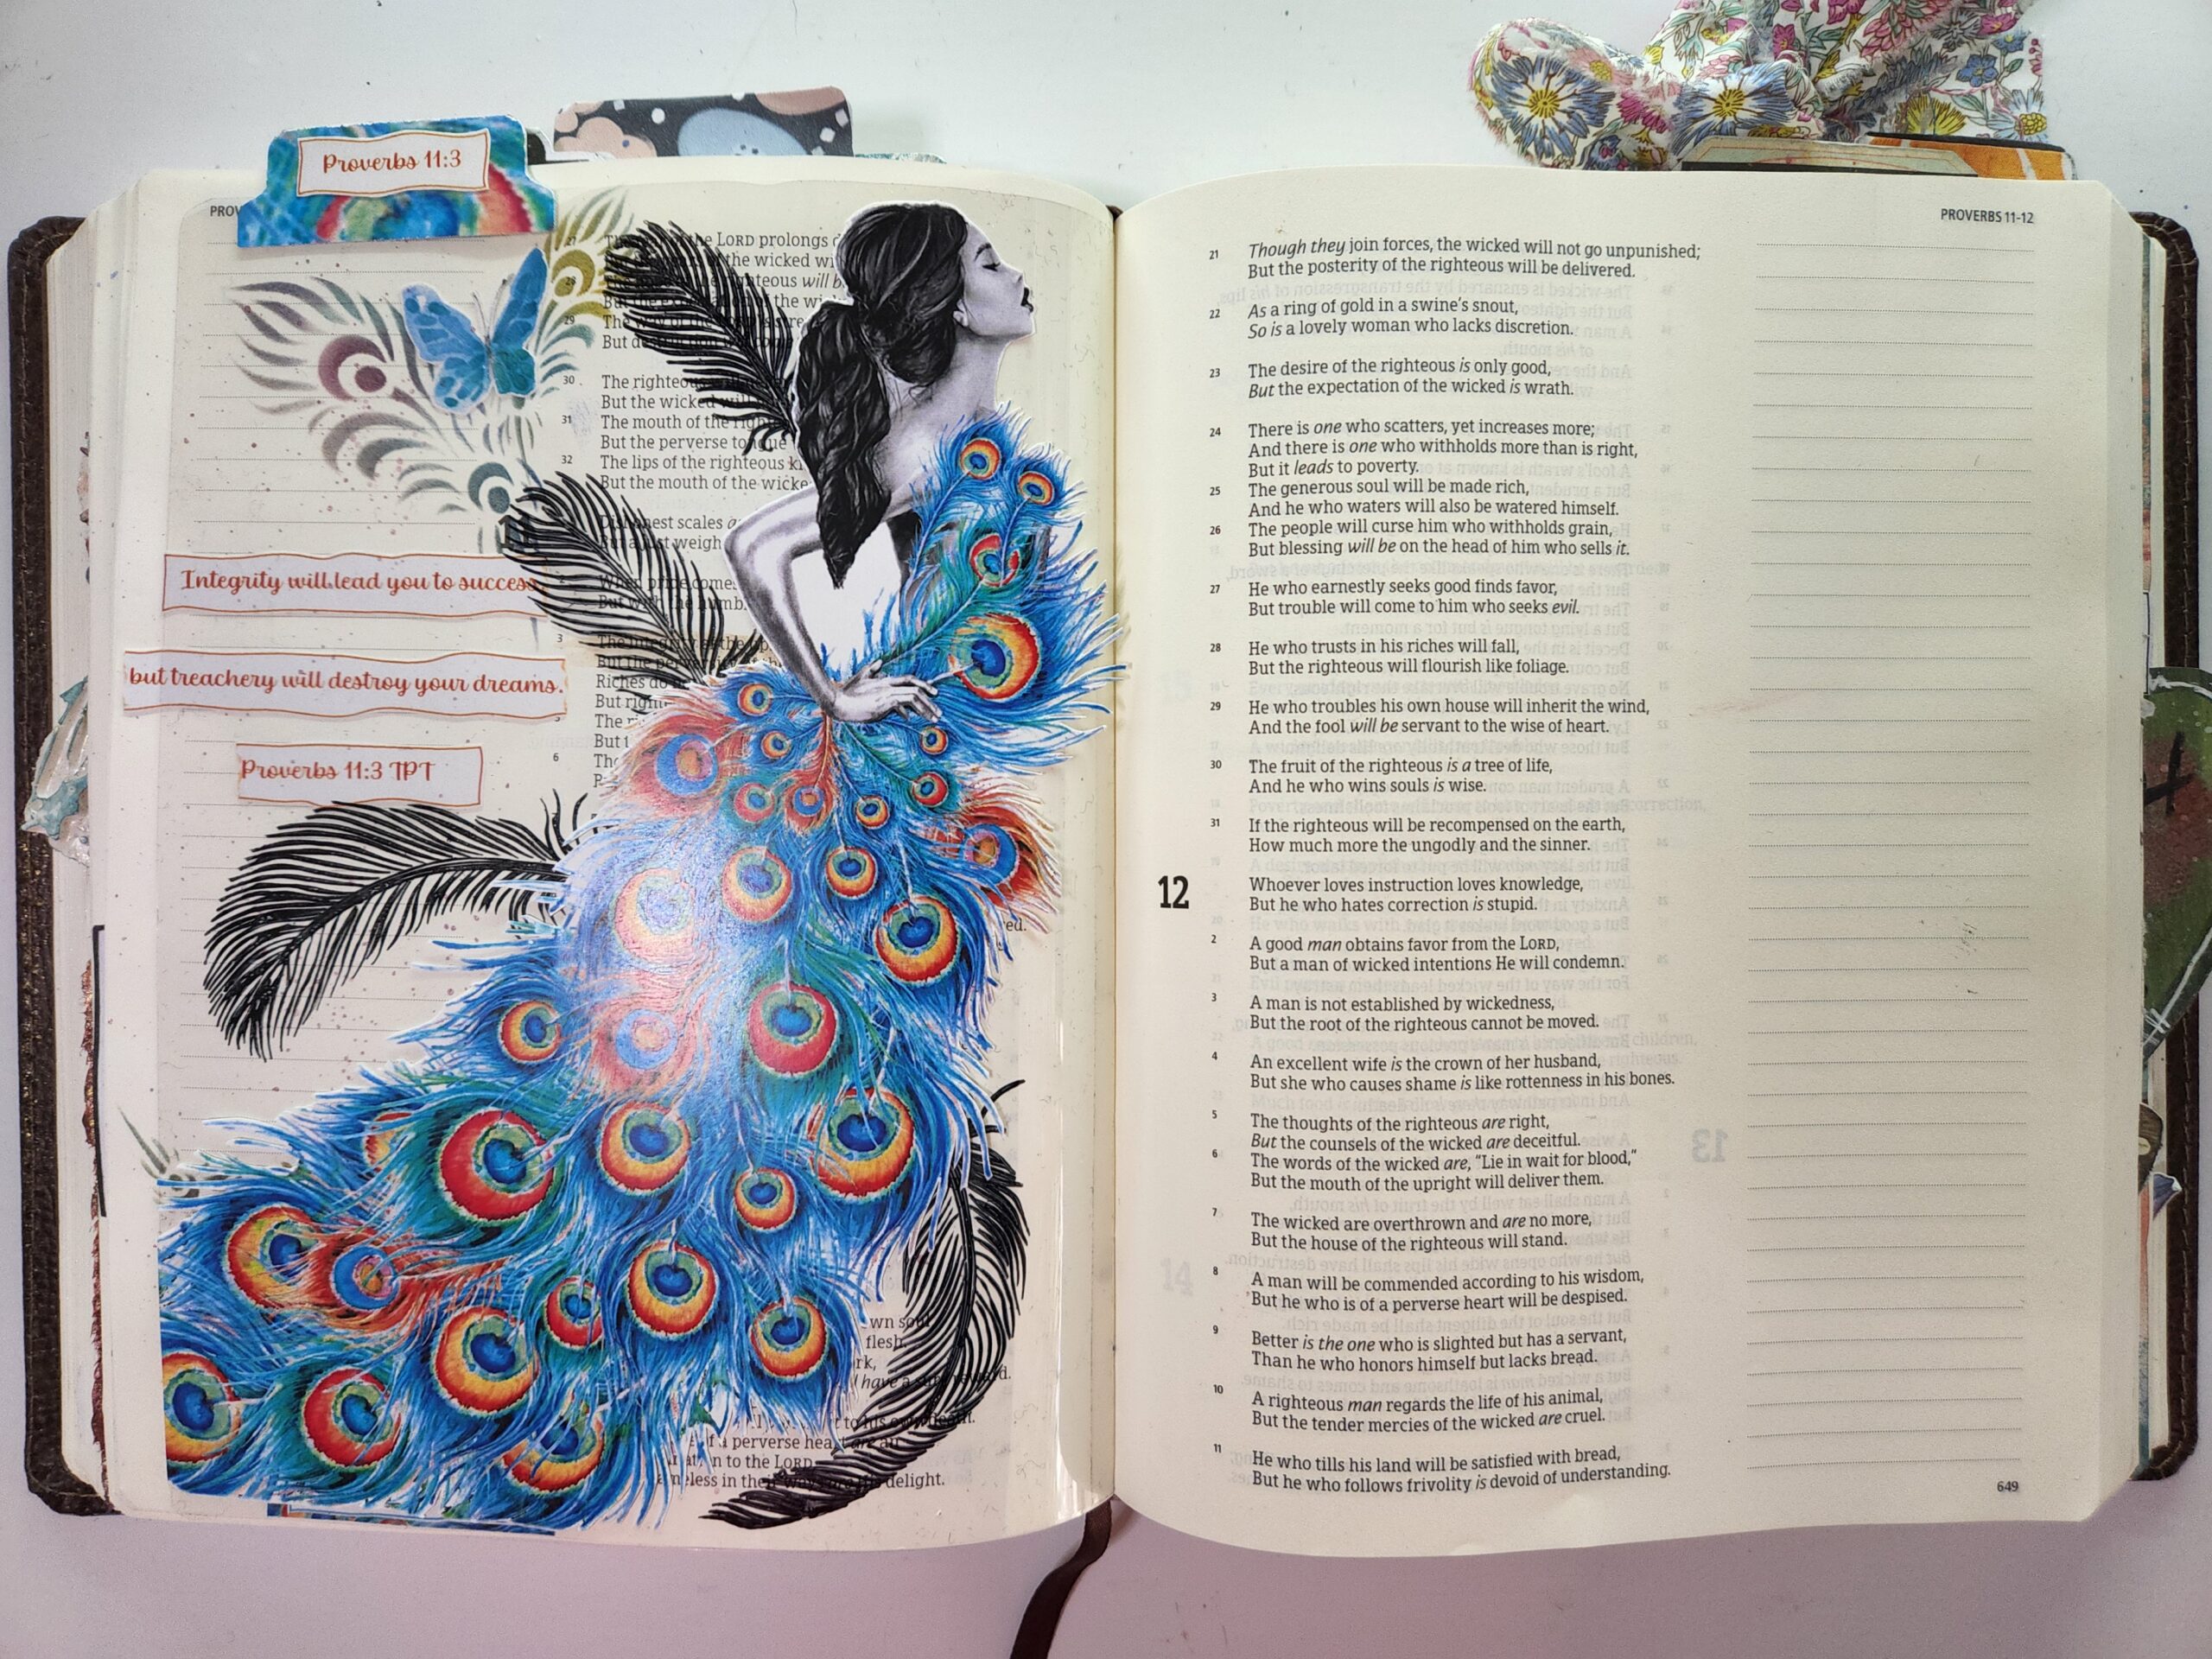 Proverbs 11:3
PROV
27
LORD prolongs
of the wicked
28
righteous will
of the
29
The way of the
But
30
The righteous
But the wicked will
31
The mouth of the
But the perverse tongue
32
The lips of the righteous
But the mouth of the
11
Dishonest scales
But a just weigh
Integrity will lead you to success
2
When pride comes
But with the
3
The integrity of the
But the
but treachery will destroy your dreams.
Riches do
But
5
The
But
Proverbs 11:3 TPT
6
own
flesh.
have a reward.
to his own death.
of a perverse heart are an
to the LORD
in their ways are His delight.
PROVERBS 11-12
21
Though they join forces, the wicked will not go unpunished;
But the posterity of the righteous will be delivered.
22
As a ring of gold in a swine's snout,
So is a lovely woman who lacks discretion.
23
The desire of the righteous is only good,
But the expectation of the wicked is wrath.
24
There is one who scatters, yet increases more;
And there is one who withholds more than is right,
But it leads to poverty.
25
The generous soul will be made rich,
And he who waters will also be watered himself.
26
The people will curse him who withholds grain,
But blessing will be on the head of him who sells it.
27
He who earnestly seeks good finds favor,
But trouble will come to him who seeks evil.
28
He who trusts in his riches will fall,
But the righteous will flourish like foliage.
29
He who troubles his own house will inherit the wind,
And the fool will be servant to the wise of heart.
30
The fruit of the righteous is a tree of life,
And he who wins souls is wise.
31
If the righteous will be recompensed on the earth,
How much more the ungodly and the sinner.
12
Whoever loves instruction loves knowledge,
But he who hates correction is stupid.
2
A good man obtains favor from the LORD,
But a man of wicked intentions He will condemn.
3
A man is not established by wickedness,
But the root of the righteous cannot be moved.
4
An excellent wife is the crown of her husband,
But she who causes shame is like rottenness in his bones.
5
The thoughts of the righteous are right,
But the counsels of the wicked are deceitful.
6
The words of the wicked are, “Lie in wait for blood,”
But the mouth of the upright will deliver them.
7
The wicked are overthrown and are no more,
But the house of the righteous will stand.
8
A man will be commended according to his wisdom,
But he who is of a perverse heart will be despised.
9
Better is the one who is slighted but has a servant,
Than he who honors himself but lacks bread.
10
A righteous man regards the life of his animal,
But the tender mercies of the wicked are cruel.
11
He who tills his land will be satisfied with bread,
But he who follows frivolity is devoid of understanding.
649